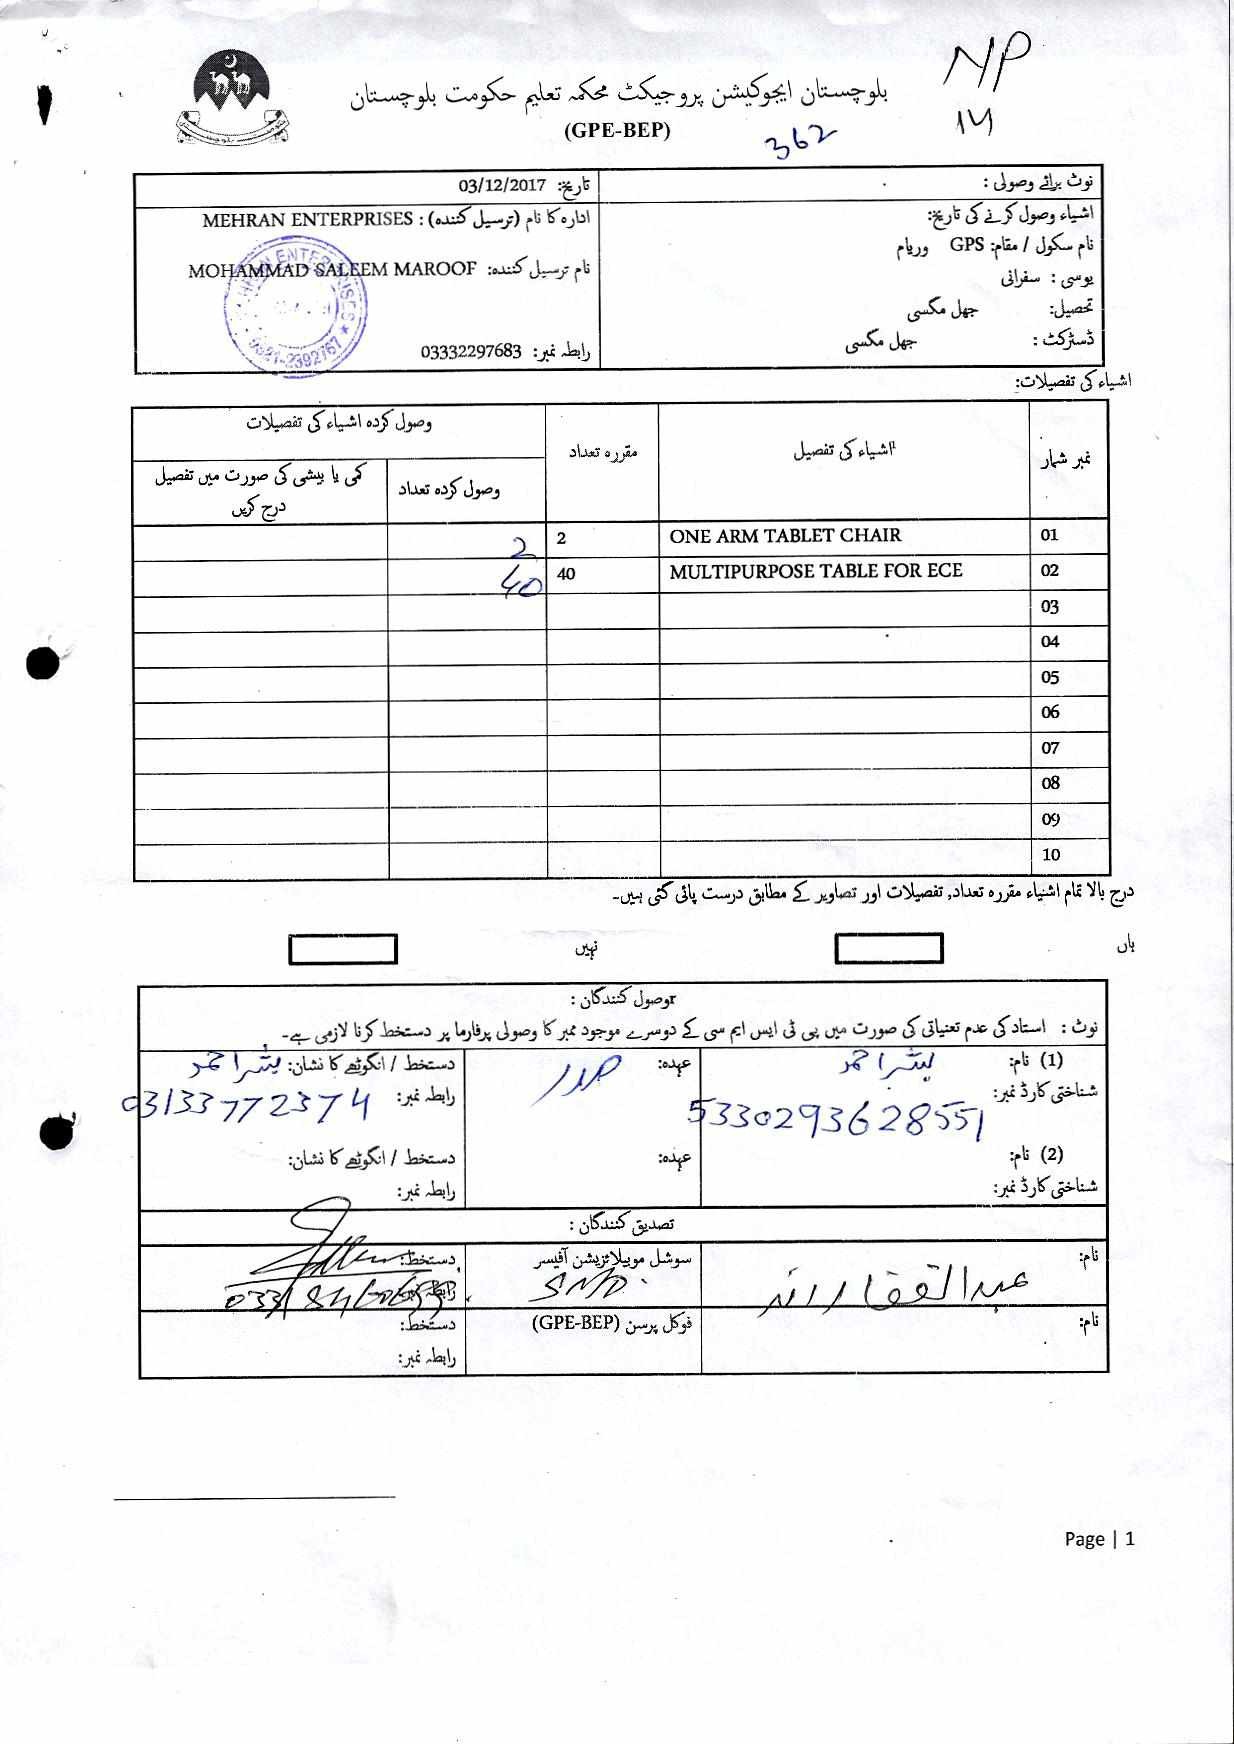 NP
14
بلوچستان ایجوکیشن پروجیکٹ محکمہ تعلیم حکومت بلوچستان
(GPE-BEP)
362
نوٹ برائے وصولی :
تاریخ: 03/12/2017
اشیاء وصول کرنے کی تاریخ:
نام سکول / مقام: GPS وریام
یوسی : سفرانی
تحصیل: جھل مگسی
ڈسٹرکٹ : جھل مگسی
ادارہ کا نام (ترسیل کنندہ) : MEHRAN ENTERPRISES
نام ترسیل کنندہ: MOHAMMAD SALEEM MAROOF
رابطہ نمبر: 03332297683
MEHRAN ENTERPRISES ★ 0321-2392767
اشیاء کی تفصیلات:
نمبر شمار
اشیاء کی تفصیل
مقررہ تعداد
وصول کردہ اشیاء کی تفصیلات
وصول کردہ تعداد
کمی یا بیشی کی صورت میں تفصیل درج کریں
01 ONE ARM TABLET CHAIR 2 2
02 MULTIPURPOSE TABLE FOR ECE 40 40
03
04
05
06
07
08
09
10
درج بالا تمام اشیاء مقررہ تعداد, تفصیلات اور تصاویر کے مطابق درست پائی گئی ہیں۔
ہاں
نہیں
وصول کنندگان :
نوٹ : استاد کی عدم تعنیاتی کی صورت میں پی ٹی ایس ایم سی کے دوسرے موجود ممبر کا وصولی پرفارما پر دستخط کرنا لازمی ہے۔
(1) نام:
عہدہ: صدر
دستخط / انگوٹھے کا نشان:
شناختی کارڈ نمبر: 5330293628551
رابطہ نمبر: 03133772374
(2) نام:
عہدہ:
دستخط / انگوٹھے کا نشان:
شناختی کارڈ نمبر:
رابطہ نمبر:
تصدیق کنندگان :
نام:
سوشل موبیلائزیشن آفیسر
SMO
دستخط:
رابطہ نمبر:
نام:
فوکل پرسن (GPE-BEP)
دستخط:
رابطہ نمبر:
Page | 1